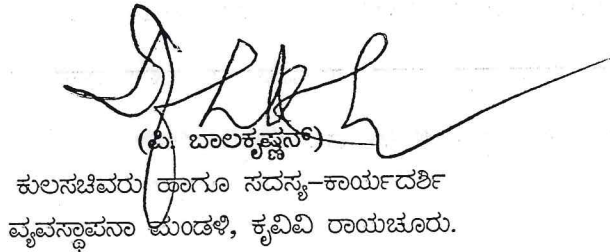 (ಪಿ. ಬಾಲಕೃಷ್ಣನ್)
ಕುಲಸಚಿವರು ಹಾಗೂ ಸದಸ್ಯ-ಕಾರ್ಯದರ್ಶಿ
ವ್ಯವಸ್ಥಾಪನಾ ಮಂಡಳಿ, ಕೃವಿವಿ ರಾಯಚೂರು.